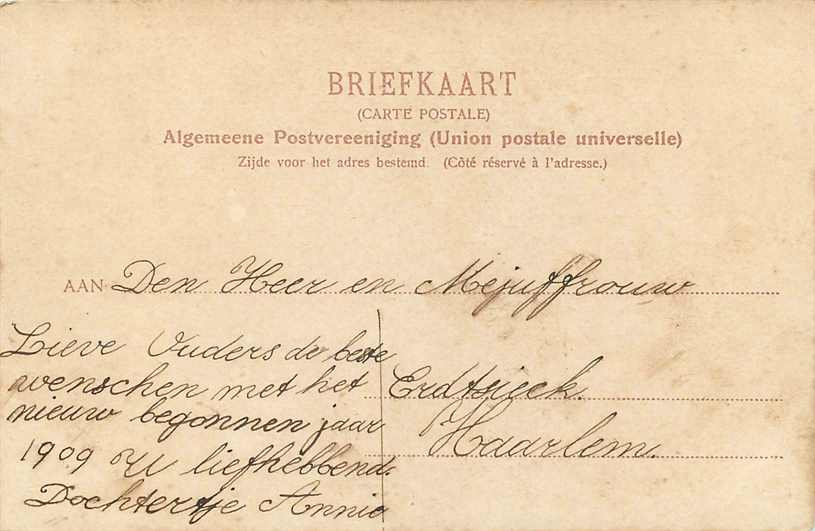 BRIEFKAART
(CARTE POSTALE)
Algemeene Postvereeniging (Union postale universelle)
Zijde voor het adres bestemd. (Côté réservé à l'adresse.)
AAN Den Heer en Mejuffrouw
Erdtsieck.
Haarlem.
Lieve Ouders de beste
wenschen met het
nieuw begonnen jaar
1909 U liefhebbend.
Dochtertje Annie